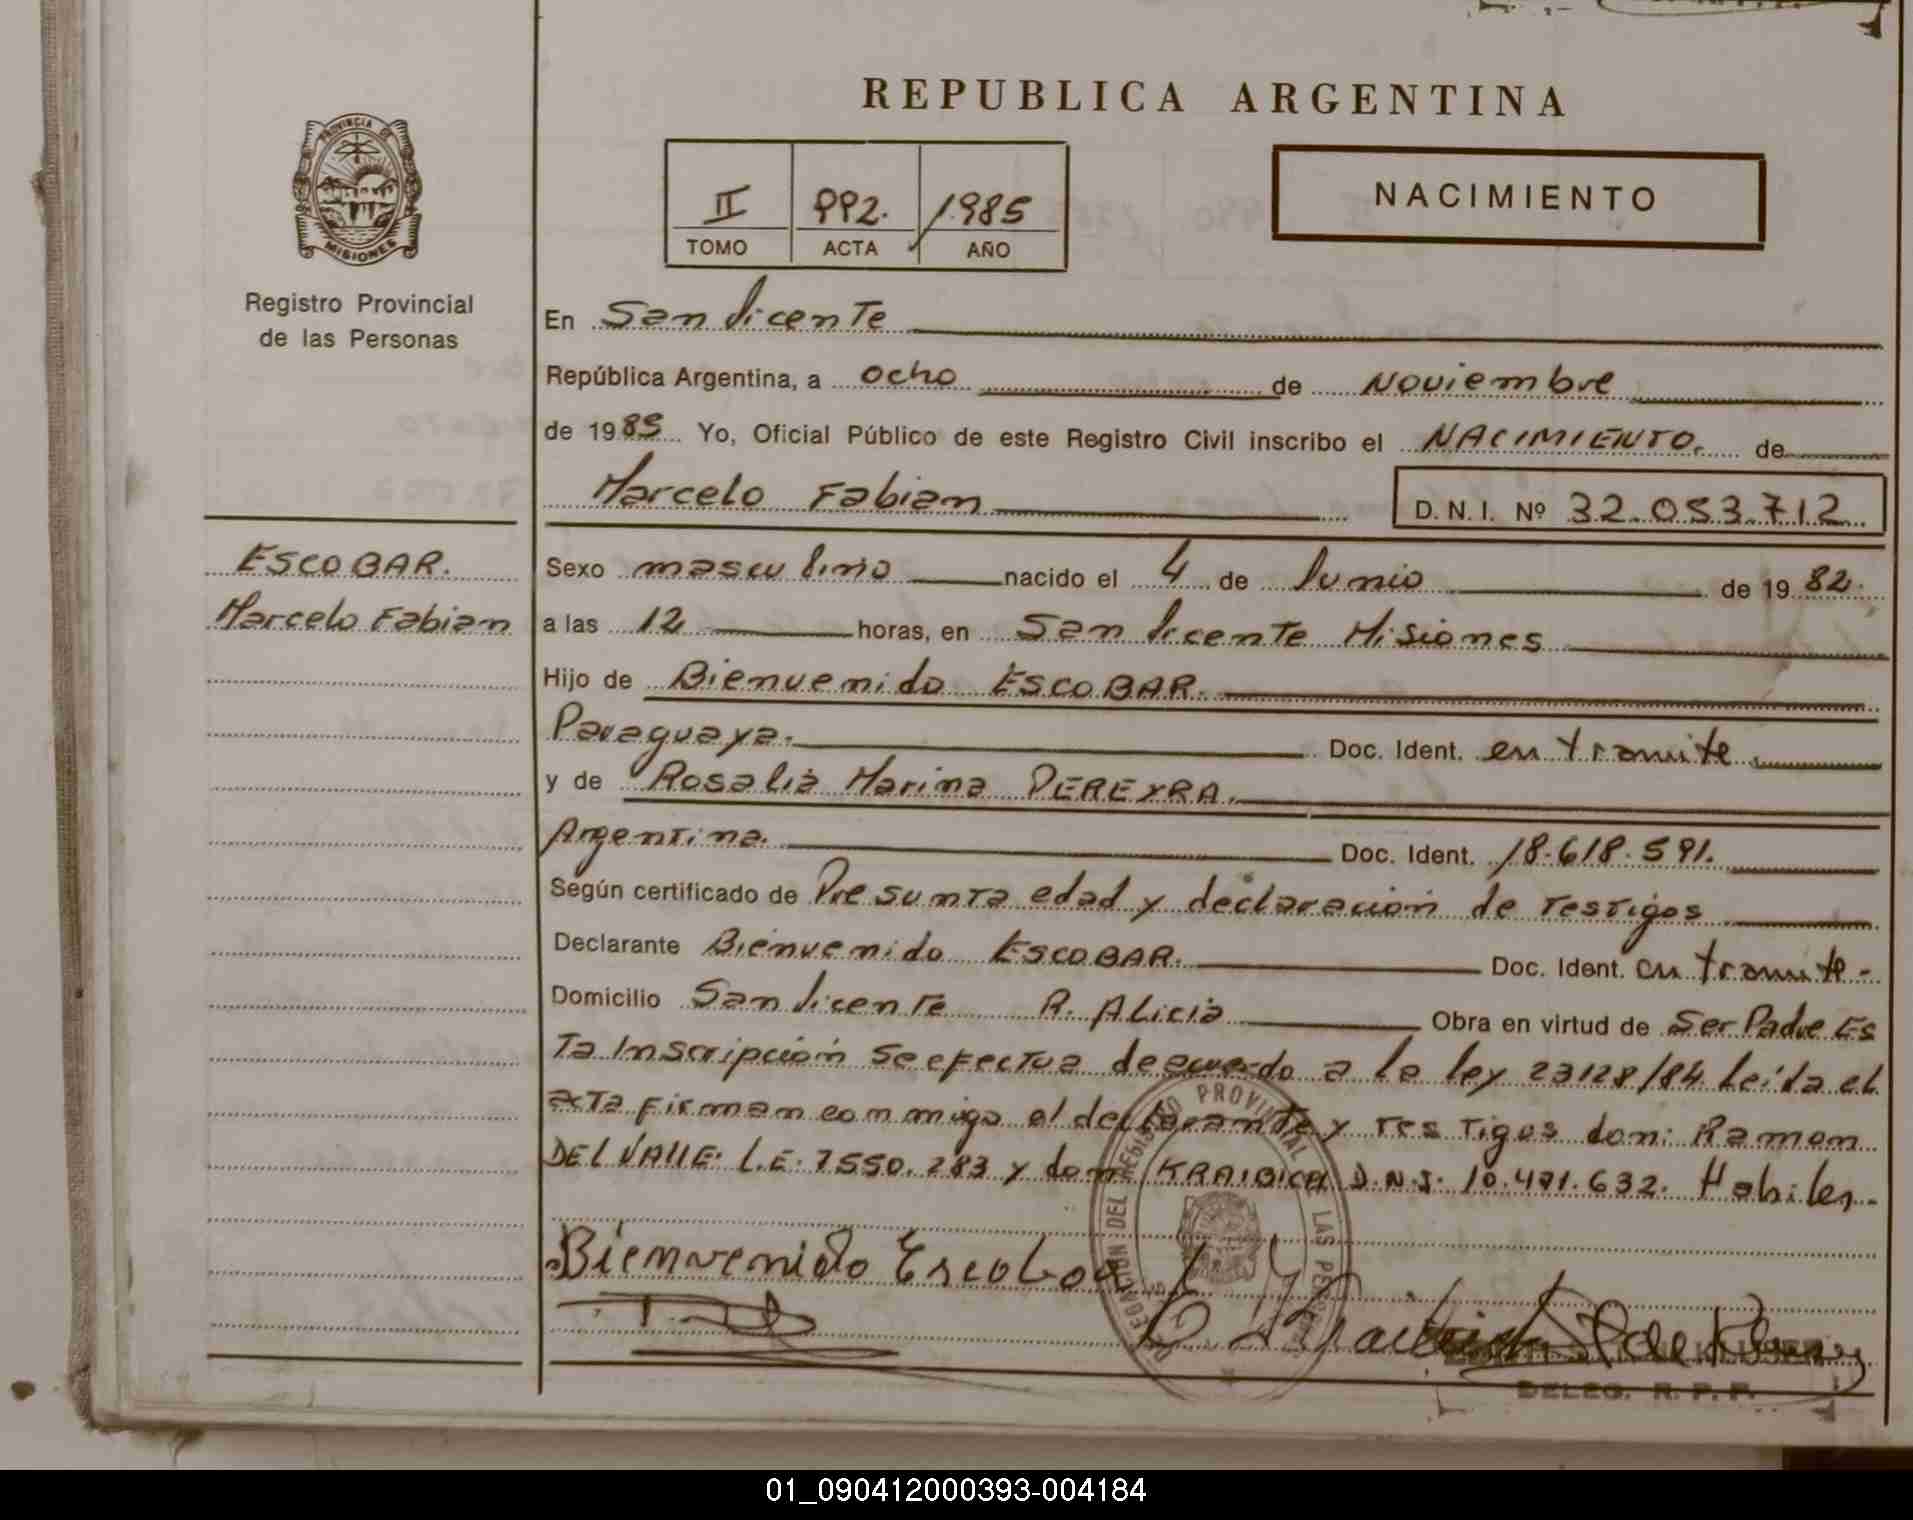 REPUBLICA ARGENTINA
PROVINCIA DE
MISIONES
Registro Provincial
de las Personas
II 992. 1985
TOMO ACTA AÑO
NACIMIENTO
En San Vicente
República Argentina, a ocho de Noviembre
de 1985 Yo, Oficial Público de este Registro Civil inscribo el NACIMIENTO. de
Marcelo Fabian D. N. I. Nº 32.053.712
ESCOBAR.
Marcelo Fabian
Sexo masculino nacido el 4 de Junio de 19 82.
a las 12 horas, en San Vicente Misiones
Hijo de Bienvenido ESCOBAR.
Paraguaya. Doc. Ident. en tramite
y de Rosalia Marina PEREYRA.
Argentina. Doc. Ident. 18.618.591.
Según certificado de Presunta edad y declaración de testigos
Declarante Bienvenido ESCOBAR. Doc. Ident. en tramite-
Domicilio San Vicente R. Alicia Obra en virtud de Ser Padre Es
ta Inscripción se efectua deacuerdo a la ley 23128/84 Leída el
acta firman conmigo el declarante y testigos don: Ramon
DEL VALLE. L.E. 7550.283 y don KRAIBICH D.N.I. 10.471.632. Habiles.-
Bienvenido Escobar
DELEGACION DEL REGISTRO PROVINCIAL DE LAS PERSONAS
DELEG. R. P. P.
01_090412000393-004184